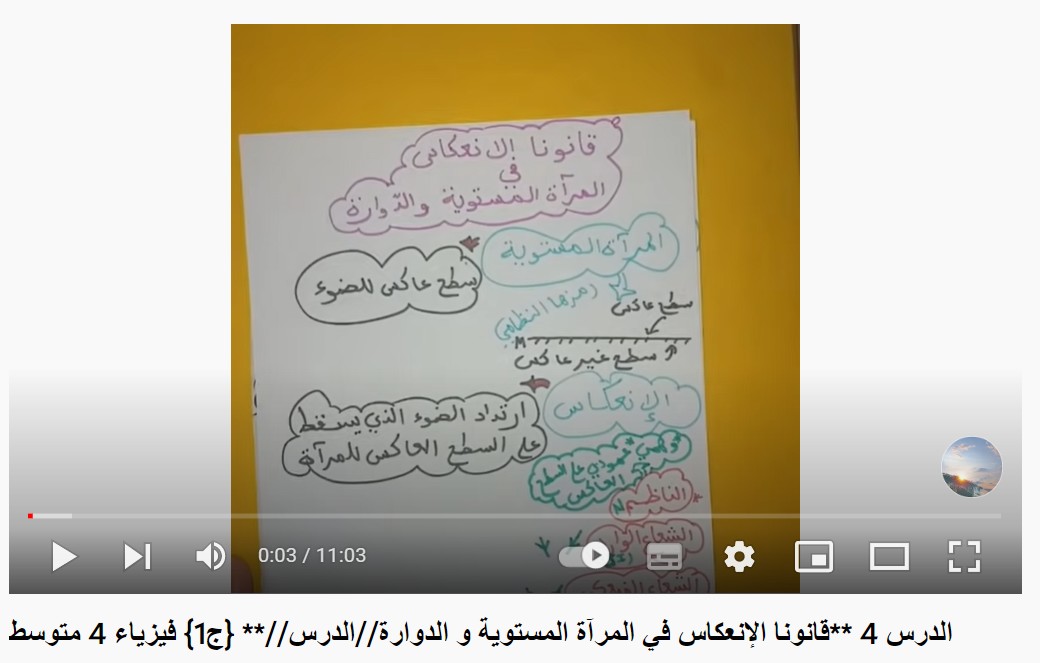 قانونا الإنعكاس
في
المرآة المستوية والدّوارة
المرآة المستوية
سطح عاكس للضوء
رمزها النظامي
سطح عاكس
M
سطح غير عاكس
الإنعكاس
ارتداد الضوء الذي يسقط
على السطح العاكس للمرآة
وهمي عمودي على السطح
العاكس
الناظم N
الشعاع الوارد
0:03 / 11:03
الدرس 4 **قانونا الإنعكاس في المرآة المستوية و الدوارة//الدرس//** {ج1} فيزياء 4 متوسط